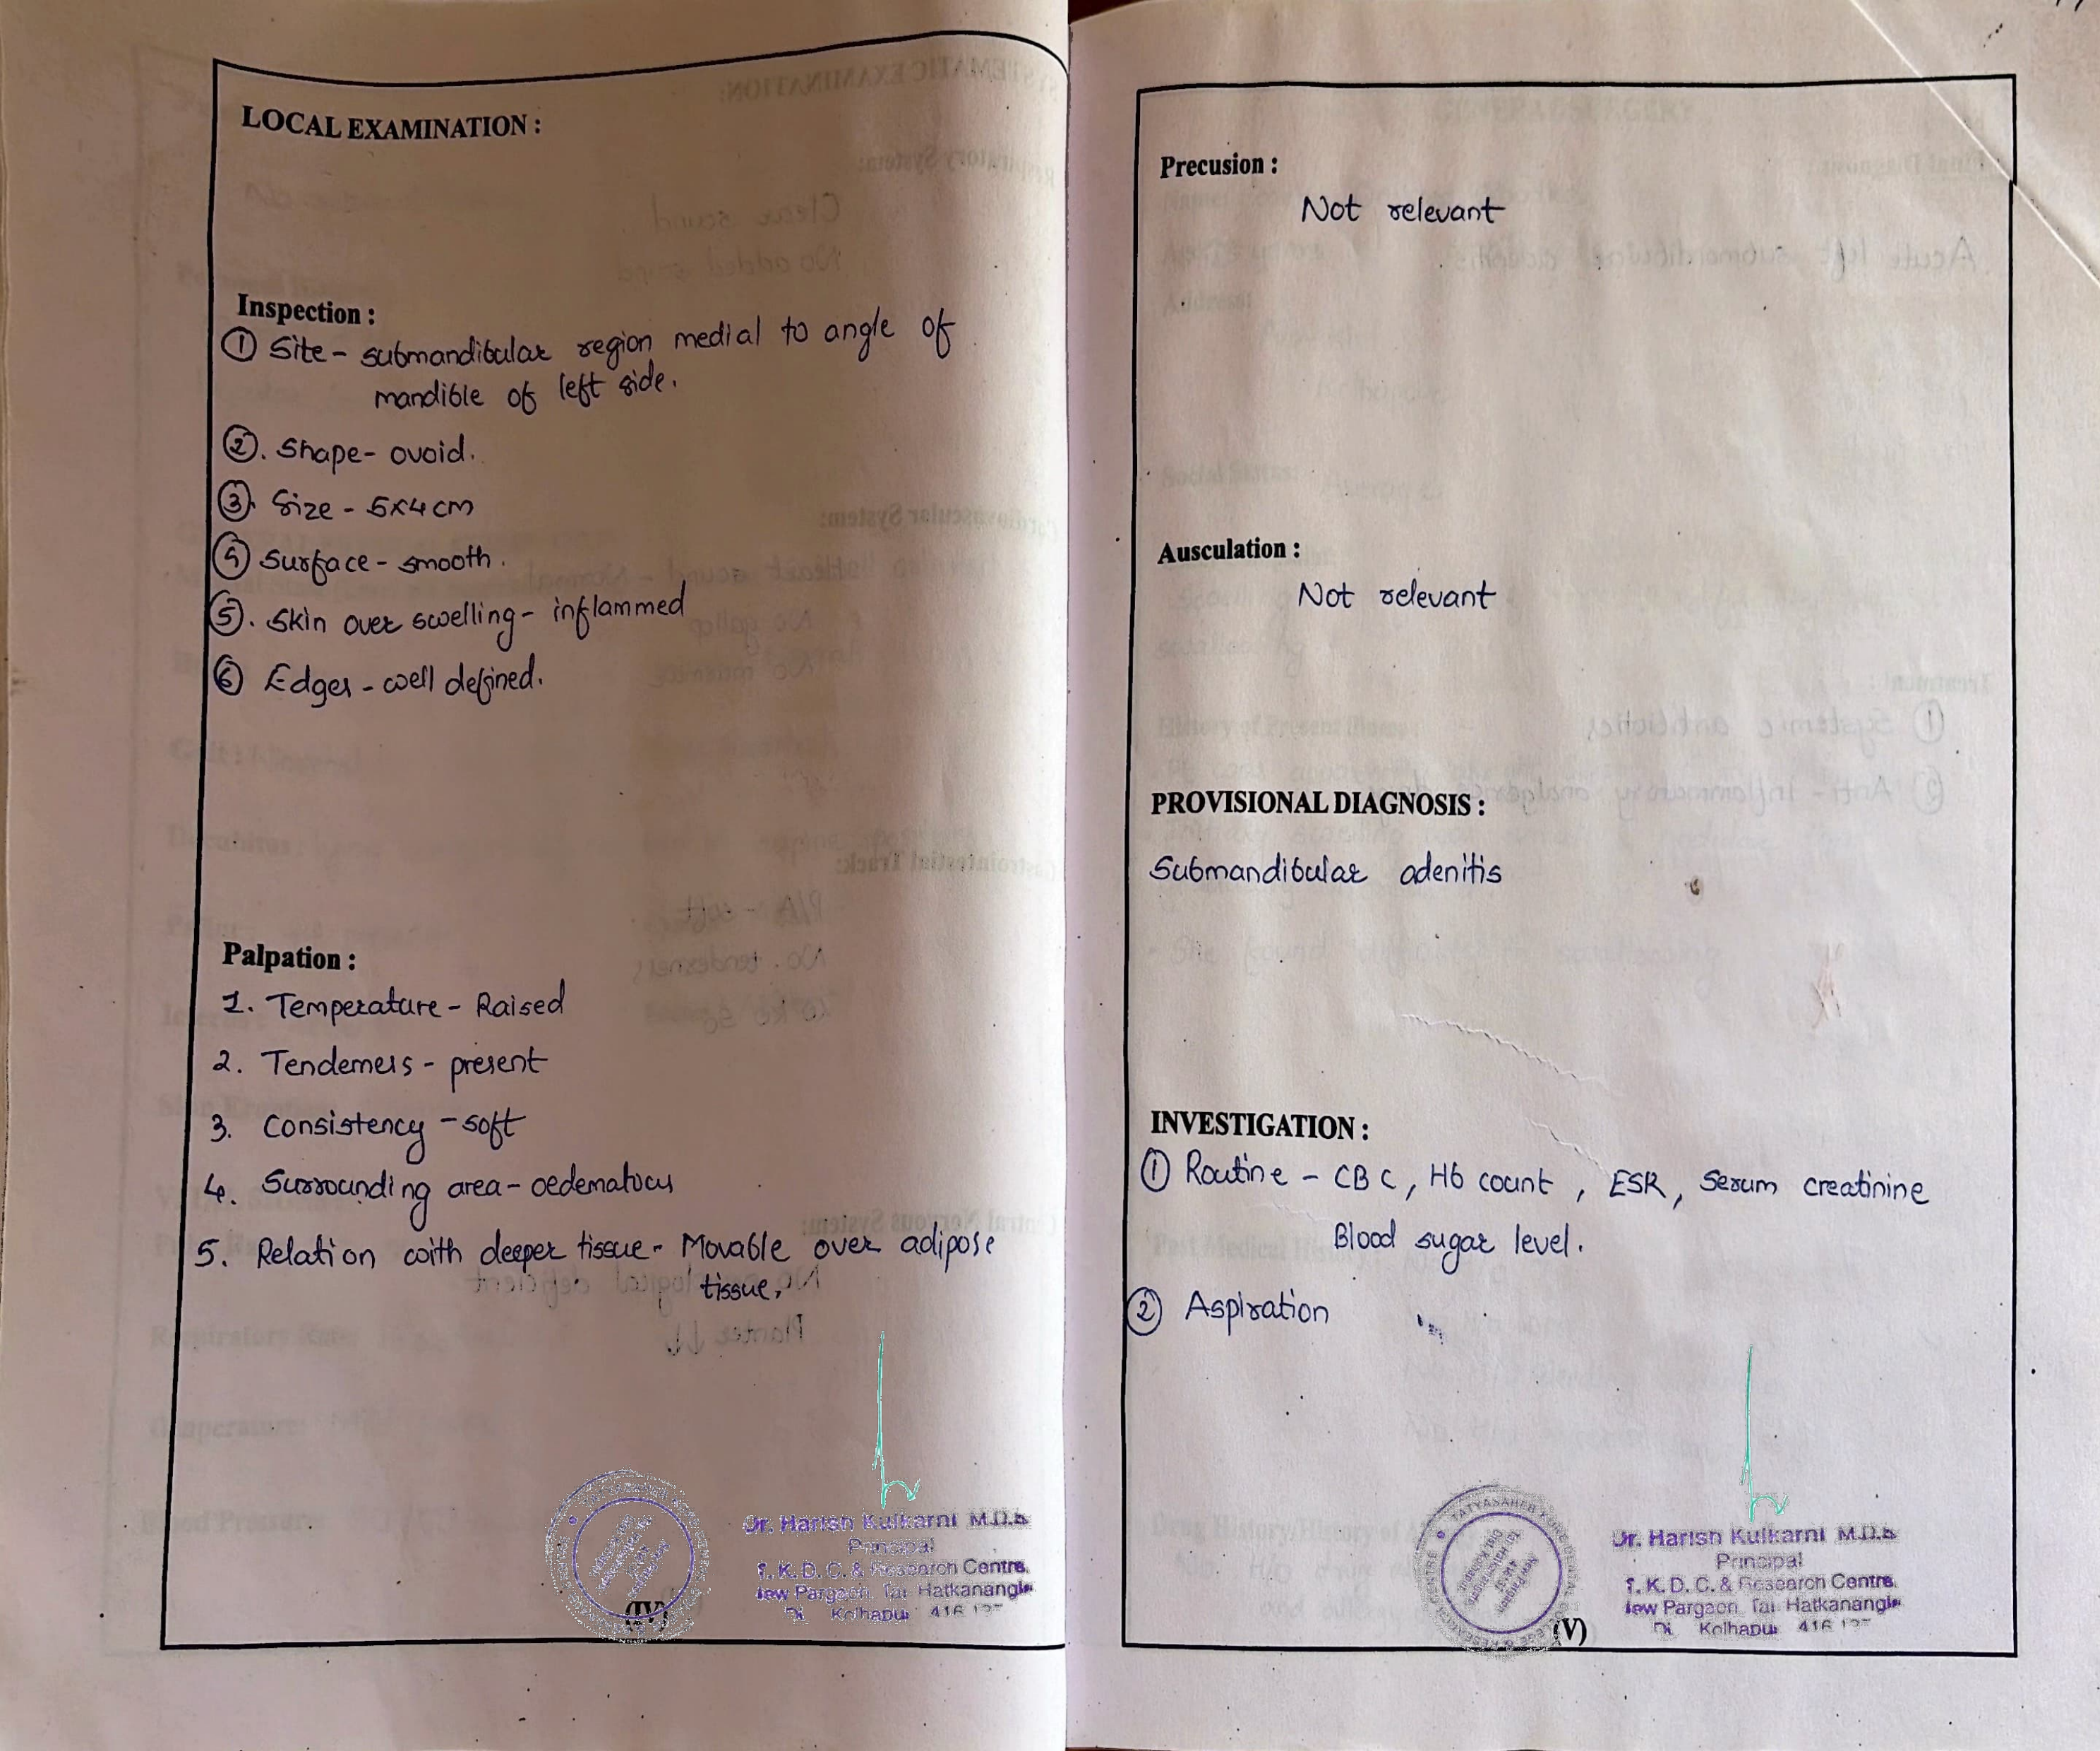 LOCAL EXAMINATION :
Inspection :
① Site - submandibular region medial to angle of
mandible of left side.
②. Shape - ovoid.
③. Size - 5x4 cm
④ Surface - smooth.
⑤. Skin over swelling - inflammed
⑥ Edges - well defined.
Palpation :
1. Temperature - Raised
2. Tenderness - present
3. Consistency - soft
4. Surrounding area - oedematous
5. Relation with deeper tissue - Movable over adipose
tissue.
Dr. Harish Kulkarni M.D.S
Principal
T. K. D. C. & Research Centre,
New Pargaon, Tal. Hatkanangle
Di. Kolhapur 416
(IV)
Precusion :
Not relevant
Ausculation :
Not relevant
PROVISIONAL DIAGNOSIS :
Submandibular adenitis
INVESTIGATION :
① Routine - CBC, Hb count, ESR, Serum creatinine
Blood sugar level.
② Aspiration
TATYASAHEB KORE DENTAL COLLEGE & RESEARCH CENTRE
Dr. Harish Kulkarni M.D.S
Principal
T. K. D. C. & Research Centre,
New Pargaon, Tal. Hatkanangle
Di. Kolhapur 416
(V)